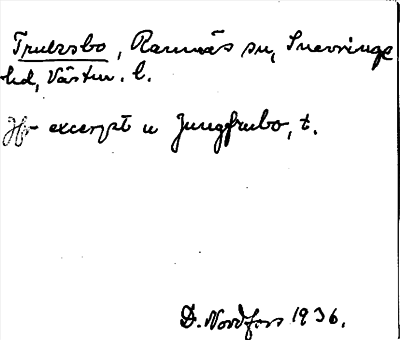 Truersbo, Ramnäs sn, Snevringe
hd, Västm. l.
Jfr excerpt u Jungfrubo, t.
D. Nordfors 1936.